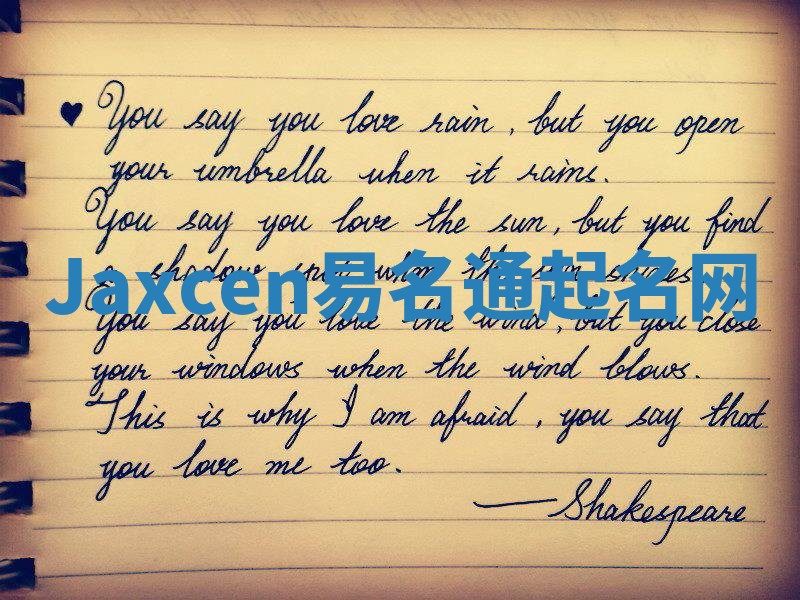 ♥ You say you love rain, but you open
your umbrella when it rains.
You say you love the sun, but you find
a shadow spot when the sun shines.
Jaxcen易名通起名网
You say you love the wind, but you close
your windows when the wind blows.
This is why I am afraid, you say that
you love me too.
—Shakespeare